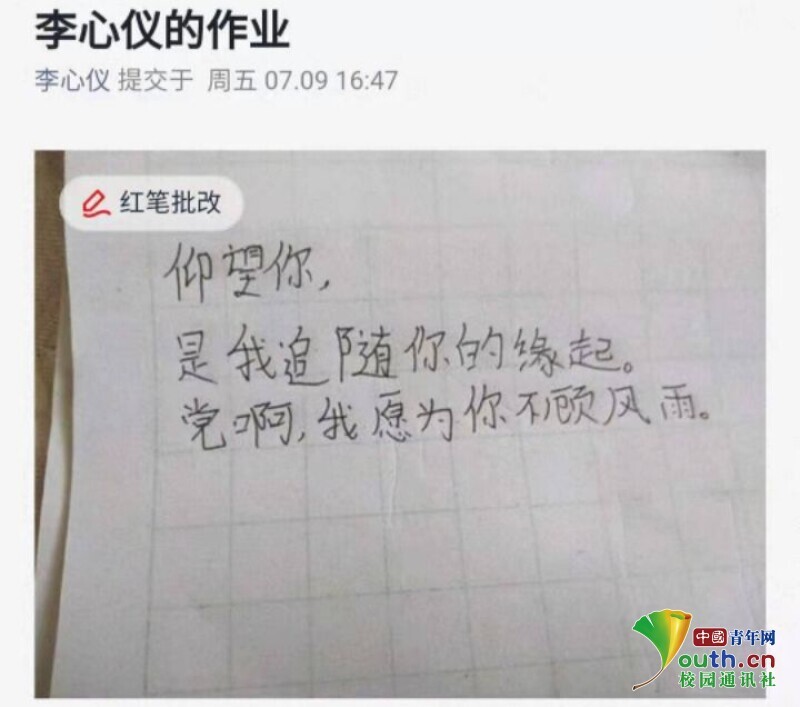 李心仪的作业
李心仪 提交于 周五 07.09 16:47
红笔批改
仰望你,
是我追随你的缘起。
党啊,我愿为你不顾风雨。
中國青年网
Youth.cn
校园通讯社